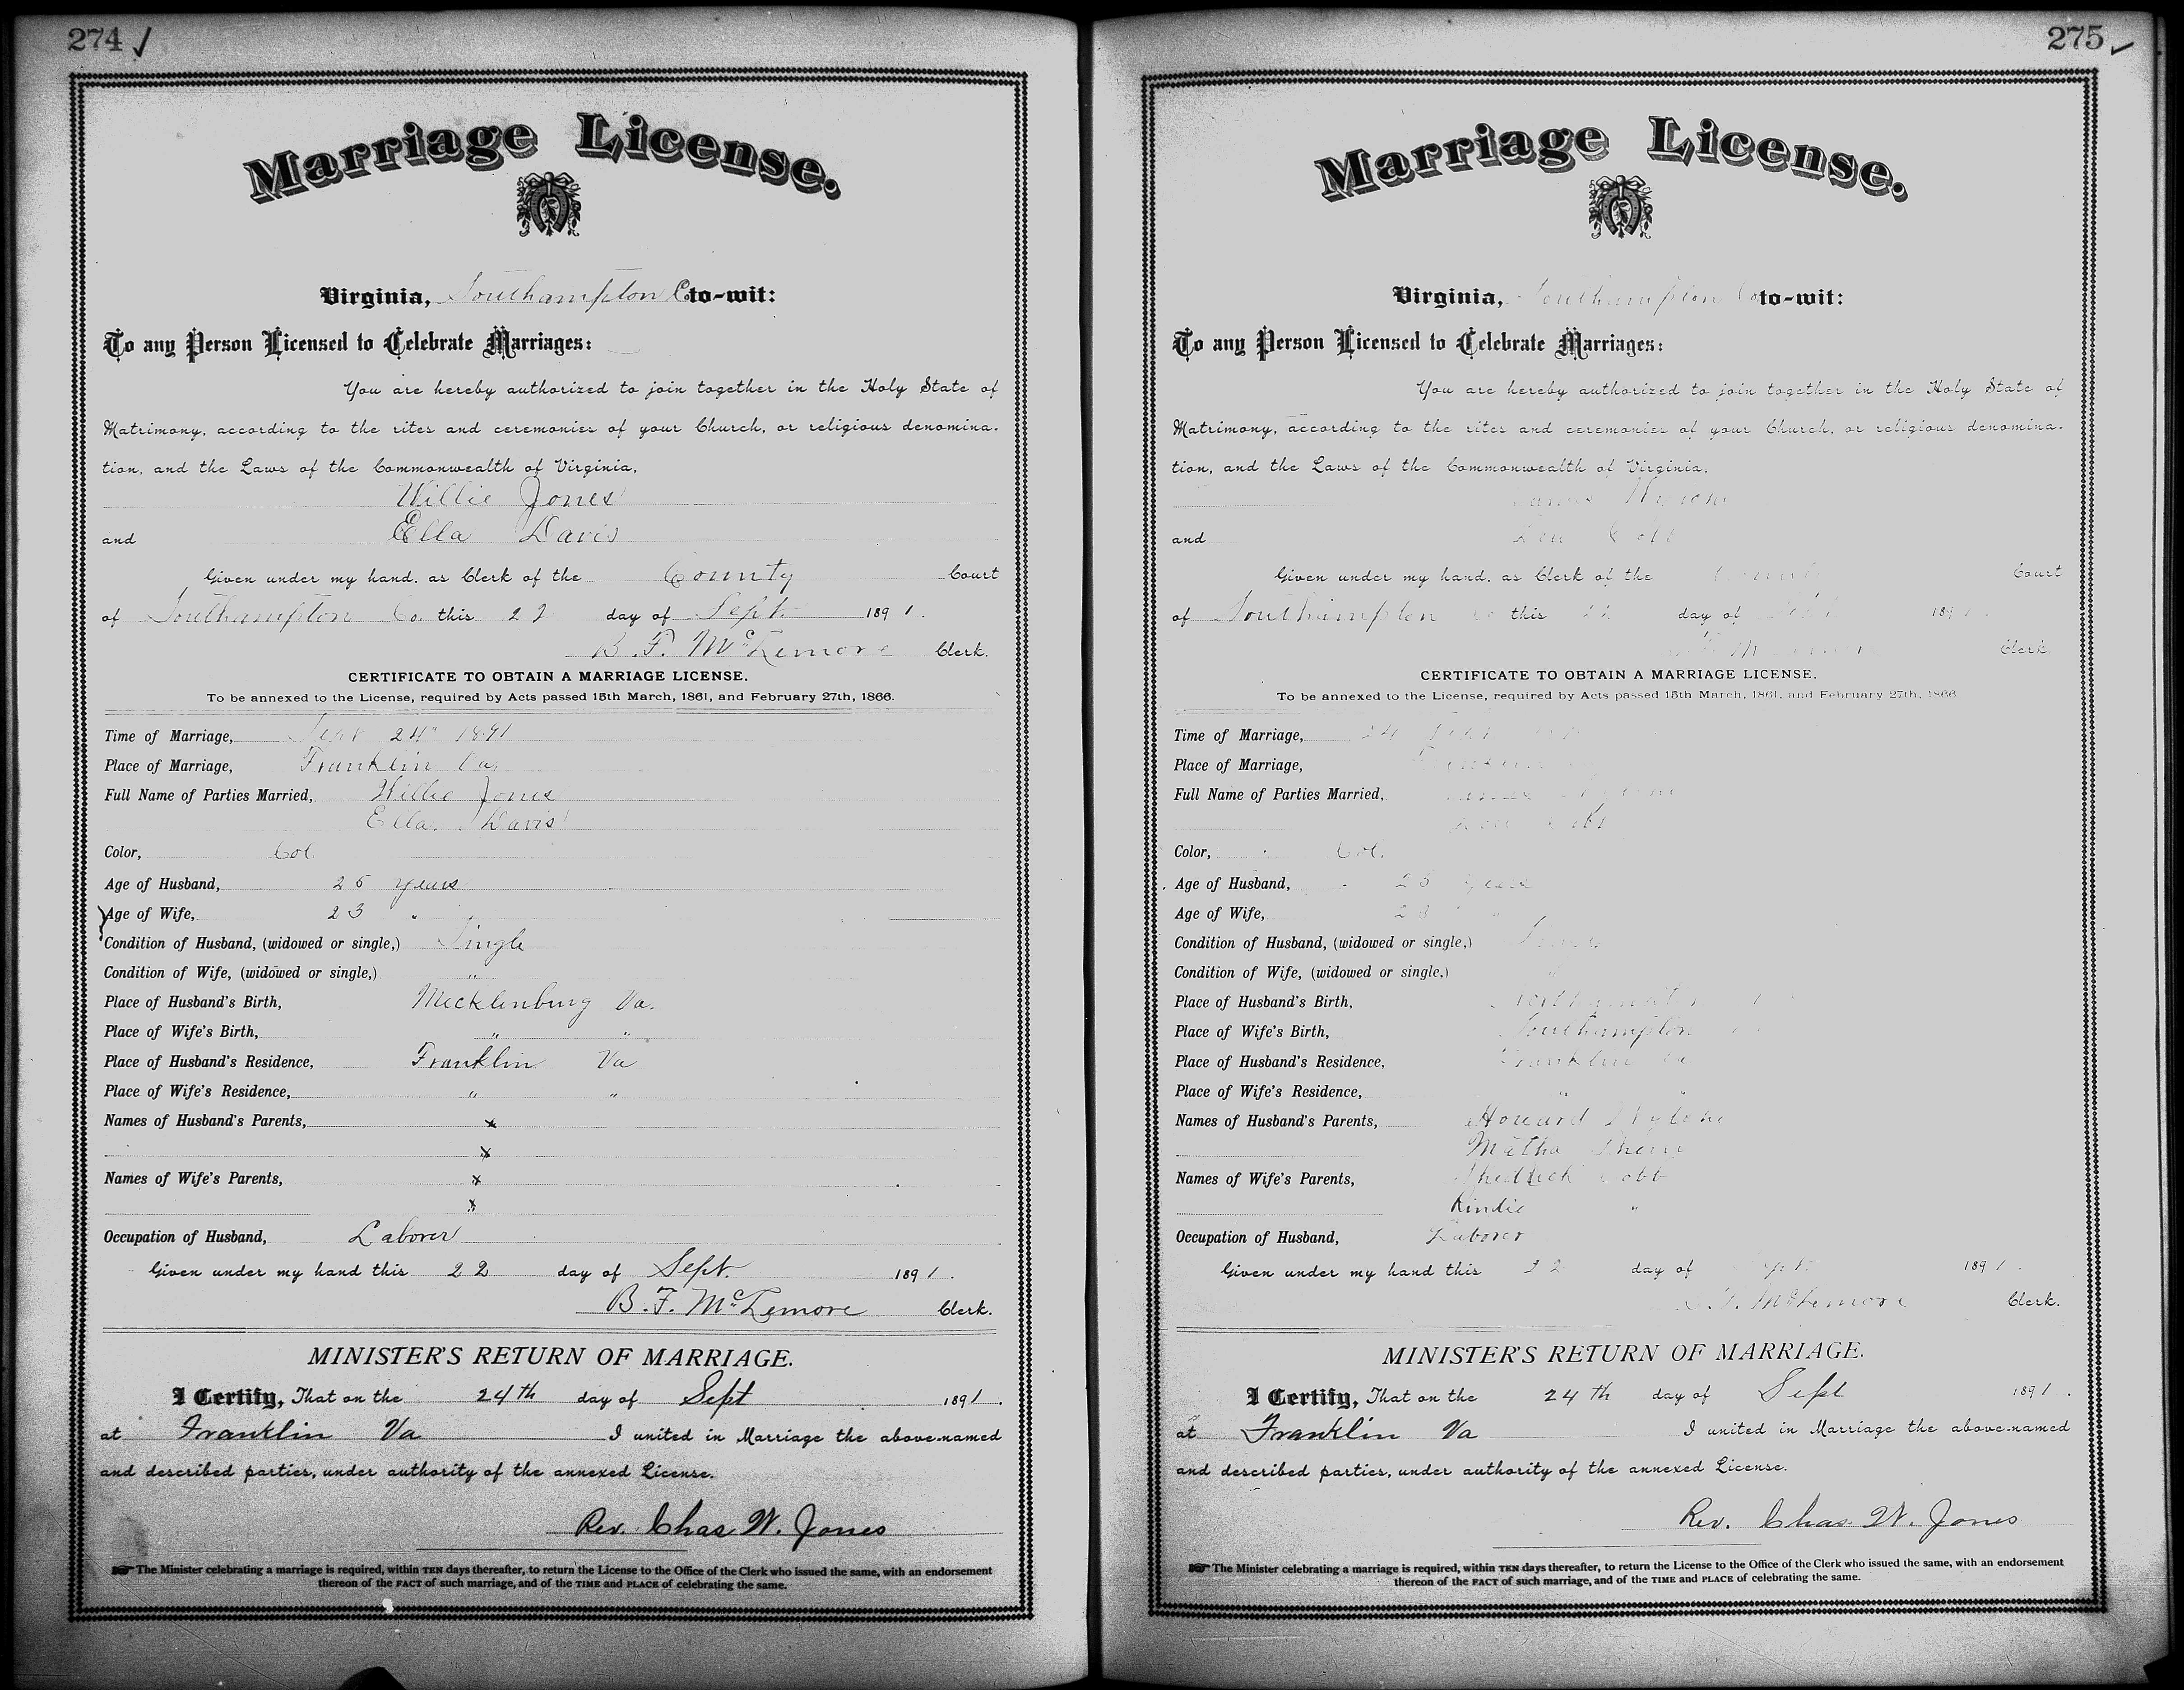 274
Marriage License.
Virginia, Southampton Co to-wit:
To any Person Licensed to Celebrate Marriages:
You are hereby authorized to join together in the Holy State of
Matrimony, according to the rites and ceremonies of your Church, or religious denomina-
tion, and the Laws of the Commonwealth of Virginia,
Willie Jones
and Ella Davis
Given under my hand, as Clerk of the County Court
of Southampton Co. this 22 day of Sept. 1891.
B. F. McLemore Clerk.
CERTIFICATE TO OBTAIN A MARRIAGE LICENSE.
To be annexed to the License, required by Acts passed 15th March, 1861, and February 27th, 1866.
Time of Marriage, Sept 24th 1891
Place of Marriage, Franklin Va.
Full Name of Parties Married, Willie Jones
Ella Davis
Color, Col.
Age of Husband, 25 years
Age of Wife, 23 "
Condition of Husband, (widowed or single,) Single
Condition of Wife, (widowed or single,) "
Place of Husband's Birth, Mecklenburg Va.
Place of Wife's Birth, " "
Place of Husband's Residence, Franklin Va
Place of Wife's Residence, " "
Names of Husband's Parents, x
x
Names of Wife's Parents, x
x
Occupation of Husband, Laborer
Given under my hand this 22 day of Sept. 1891.
B. F. McLemore Clerk.
MINISTER'S RETURN OF MARRIAGE.
I Certify, That on the 24th day of Sept 1891.
at Franklin Va I united in Marriage the above-named
and described parties, under authority of the annexed License.
Rev. Chas W. Jones
The Minister celebrating a marriage is required, within TEN days thereafter, to return the License to the Office of the Clerk who issued the same, with an endorsement
thereon of the FACT of such marriage, and of the TIME and PLACE of celebrating the same.
275
Marriage License.
Virginia, Southampton Co to-wit:
To any Person Licensed to Celebrate Marriages:
You are hereby authorized to join together in the Holy State of
Matrimony, according to the rites and ceremonies of your Church, or religious denomina-
tion, and the Laws of the Commonwealth of Virginia,
and Cobb
Given under my hand, as Clerk of the County Court
of Southampton Co this 22 day of Sept 1891.
Clerk.
CERTIFICATE TO OBTAIN A MARRIAGE LICENSE.
To be annexed to the License, required by Acts passed 15th March, 1861, and February 27th, 1866
Time of Marriage, 24 Sept
Place of Marriage, Franklin
Full Name of Parties Married,
Cobb
Color, Col.
Age of Husband, 25 years
Age of Wife, 23 "
Condition of Husband, (widowed or single,) Single
Condition of Wife, (widowed or single,) "
Place of Husband's Birth,
Place of Wife's Birth, Southampton
Place of Husband's Residence, Franklin Va
Place of Wife's Residence, " "
Names of Husband's Parents, Howard
Matha
Names of Wife's Parents, Shedrick Cobb
Kindie "
Occupation of Husband, Laborer
Given under my hand this 22 day of Sept. 1891.
B. F. McLemore Clerk.
MINISTER'S RETURN OF MARRIAGE.
I Certify, That on the 24th day of Sept 1891.
at Franklin Va I united in Marriage the above-named
and described parties, under authority of the annexed License.
Rev. Chas. W. Jones
The Minister celebrating a marriage is required, within TEN days thereafter, to return the License to the Office of the Clerk who issued the same, with an endorsement
thereon of the FACT of such marriage, and of the TIME and PLACE of celebrating the same.